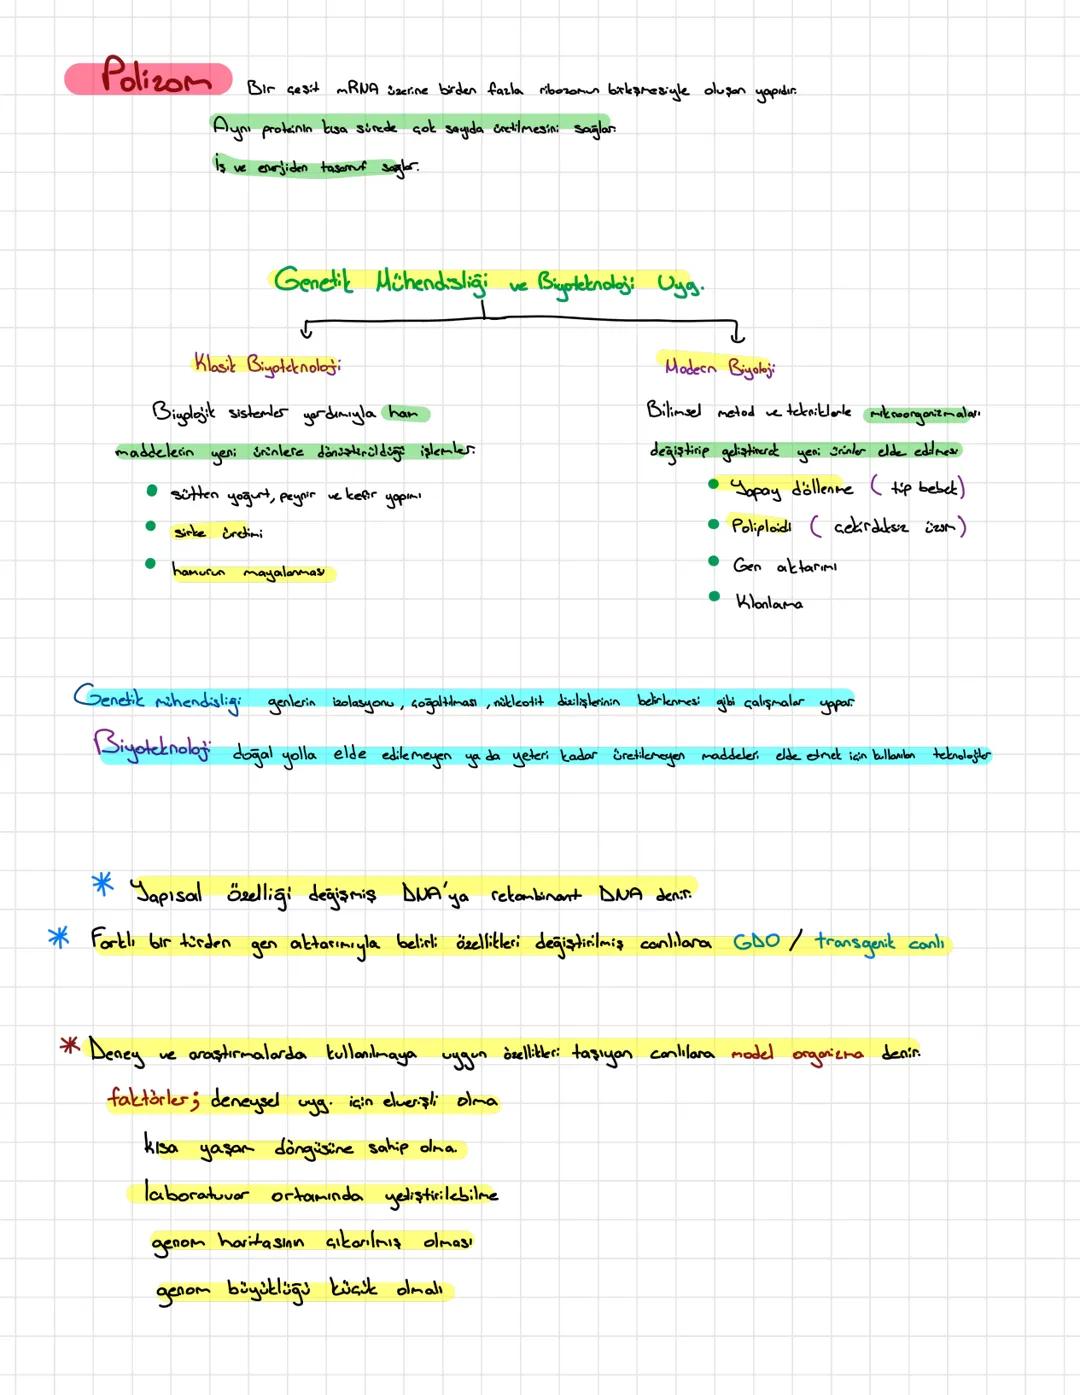 Polizom Bir çeşit mRNA üzerine birden fazla ribozomun birleşmesiyle oluşan yapıdır.
Aynı proteinin kısa sürede çok sayıda üretilmesini sağlar.
İş ve enerjiden tasarruf sağlar.
Genetik Mühendisliği ve Biyoteknoloji Uyg.
Klasik Biyoteknoloji
Biyolojik sistemler yardımıyla ham
maddelerin yeni ürünlere dönüştürüldüğü işlemler.
• sütten yoğurt, peynir ve kefir yapımı
• sirke üretimi
• hamurun mayalanması
Modern Biyoloji
Bilimsel metod ve tekniklerle mikroorganizmaları
değiştirip geliştirerek yeni ürünler elde edilmesi
• Yapay döllenme ( tüp bebek)
• Poliploidi ( çekirdeksiz üzüm)
• Gen aktarımı
• Klonlama
Genetik mühendisligi genlerin izolasyonu, çoğaltılması, nükleotit dizilişlerinin belirlenmesi gibi çalışmalar yapar.
Biyoteknoloji doğal yolla elde edilemeyen ya da yeteri kadar üretilemeyen maddeleri elde etmek için kullanılan teknolojiler
* Yapısal özelliği değişmiş DNA'ya rekombinant DNA denir.
* Farklı bir türden gen aktarımıyla belirli özellikleri değiştirilmiş canlılara GDO / transgenik canlı
* Deney ve araştırmalarda kullanılmaya uygun özellikleri taşıyan canlılara model organizma denir.
faktörler; deneysel uyg. için elverişli olma
kısa yaşam döngüsüne sahip olma.
laboratuvar ortamında yetiştirilebilme
genom haritasının çıkarılmış olması
genom büyüklüğü küçük olmalı